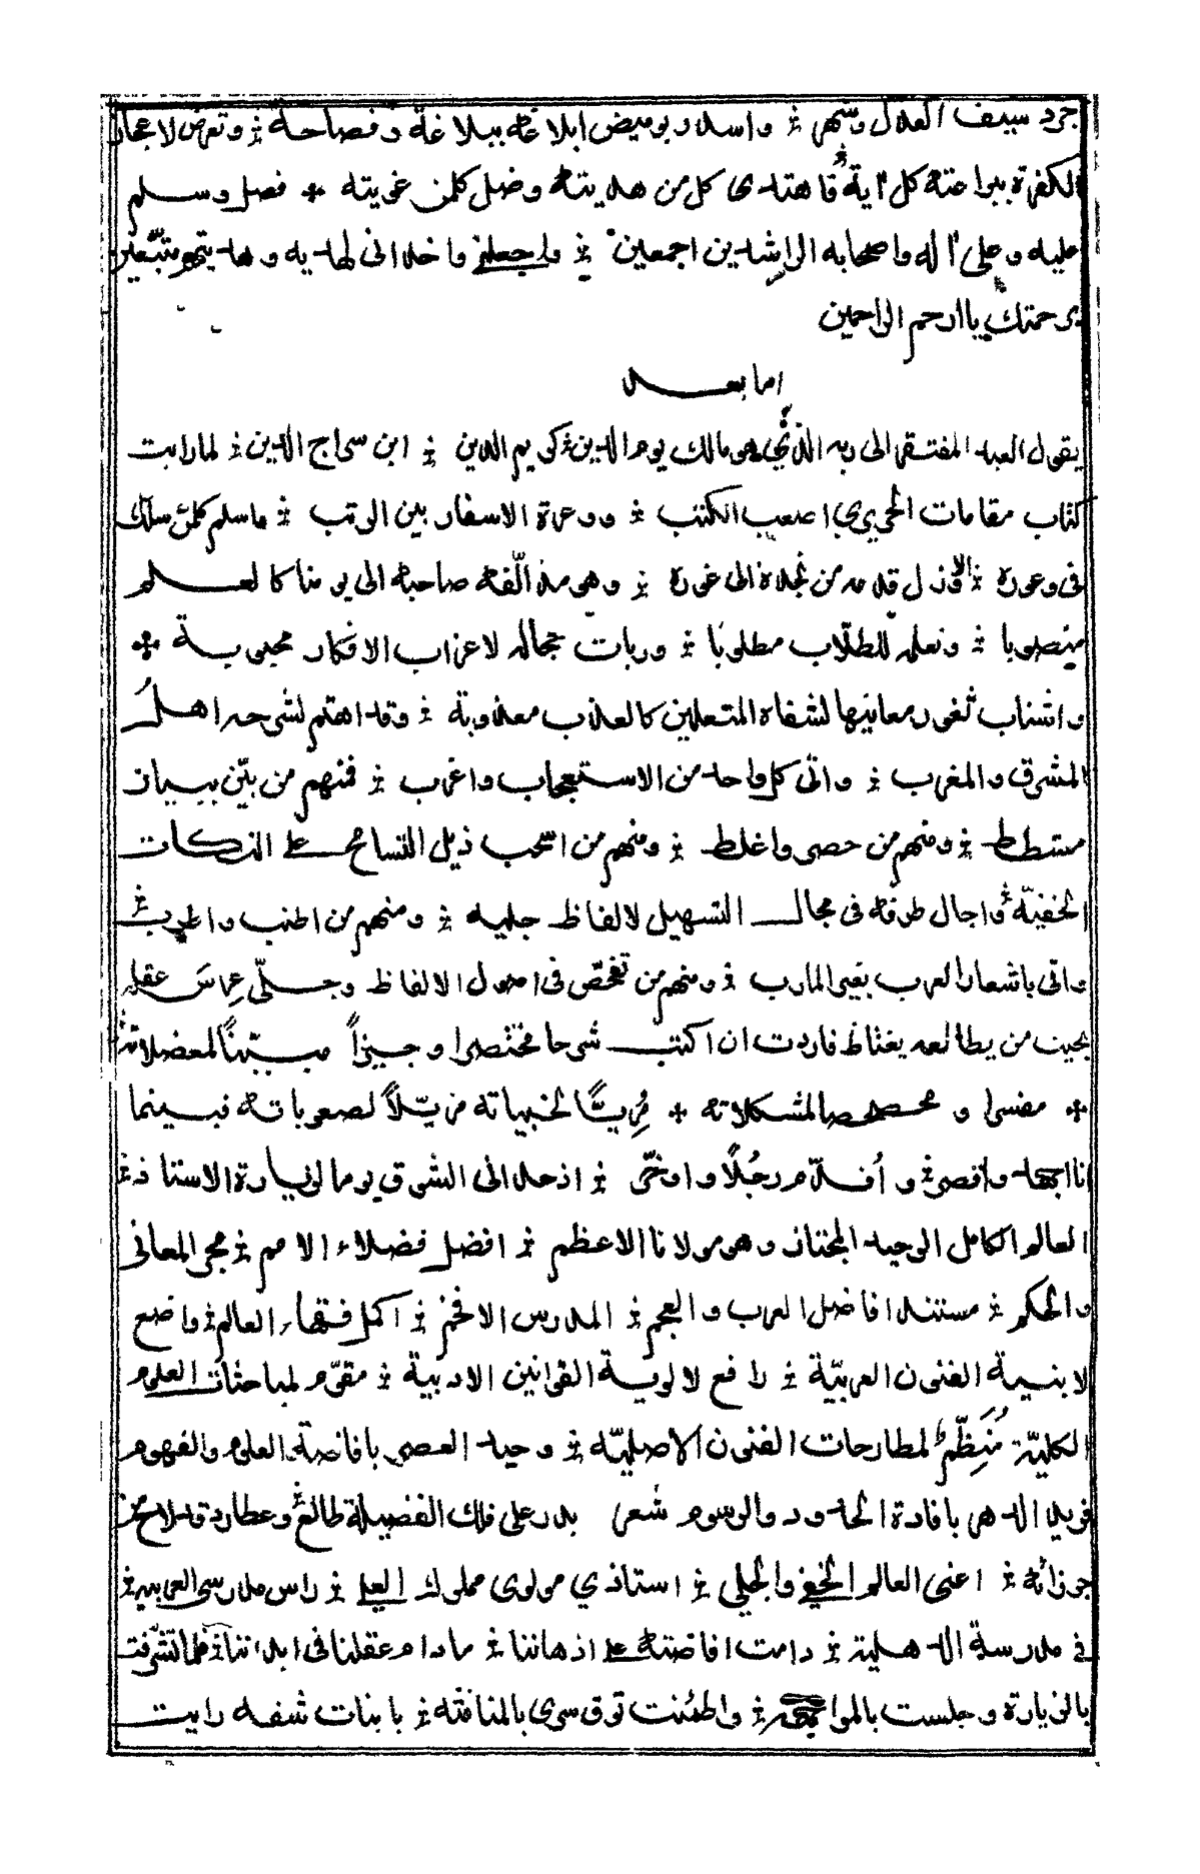 جرد سيف العدل وشهر ؞ واسد وبوميض ابلاغه ببلاغة وفصاحة ؞ وتعرض لاعجاز
الكفرة ببراعته كل اية فاهتدى كل من هديته وضل كلمن غويته ؞ فصل وسلم
عليه وعلى اله واصحابه الراشدين اجمعين ؞ واجعلنى واخدانى لهديه وهديتهم متبعين
برحمتك ياارحم الراحمين
اما بعد
يقول العبد المفتقر الى ربه الذى هو مالك يوم الدين ؞ كريم الدين ؞ ابن سراج الدين ؞ لما رايت
كتاب مقامات الحريرى اصعب الكتب ؞ ووعرة الاسفار بين الرتب ؞ ماسلم كلمن سلك
فى وعورة ؞ الا ونزل قدمه من نجدة الى غورة ؞ وهو مذ الفه صاحبه الى يومنا كالعلم
منصوبا ؞ وتعلمه للطلاب مطلوبا ؞ وربات حجاله لاعزاب الافكار محبوبة ؞
واشناب ثغور معانيها لشفاه المتعلمين كالعذاب معذوبة ؞ وقد اهتم لشرحه اهل
المشرق والمغرب ؞ واتى كل واحد من الاستعجاب واغرب ؞ فمنهم من بيّن ببيان
مشطط ؞ ومنهم من حصر واغلط ؞ ومنهم من اسحب ذيل التسامح على النكات
الخفيّة واجال طرفه فى مجال التسهيل لالفاظ جليه ؞ ومنهم من اطنب واطرب ؞
واتى باشعار العرب بغير المارب ؞ ومنهم من تفحّص فى اصول الالفاظ وجلّى
بحيث من يطالعه يغتاظ فاردت ان اكتب شرحا مختصرا وجيزاً مبيّناً لمعضلاته
؞ مفسرا ومحصحصا لمشكلاته ؞ مُرِيّاً لخبياته مزيّلاً لصعوباته فبينما
انا اجهد واقصر ؞ و اُقدّم رجُلاً واوخّر ؞ اذ حدانى الشوق يوما لزيارة الاستاذ ؞
العالم الكامل الوحيد المجتاز وهو مولانا الاعظم ؞ افضل فضلاء الامم ؞ محى المعانى
والحكم ؞ مستند افاضل العرب والعجم ؞ المدرس الافخم ؞ اكمل فقهاء العالم ؞ واضع
لابنية الفنون العربيّة ؞ رافع لالوية القوانين الادبية ؞ مقوّم لمباحثات العلوم
الكليّة مُنَظِّم لمطارحات الفنون الاصليّه ؞ وحيد العصر بافاضة العلوم والفهوم
فريد الدهر بافادة الحدود والرسوم شعر بدر على فلك الفضيلة طالع وعطارد قد لاح من
جوزائه ؞ اعنى العالم الخفى والجلى ؞ استاذي مولوى مملوك العلى ؞ راس مدرسى العربيه ؞
فى مدرسة الدهلية ؞ دامت افاضته على اذهاننا ؞ مادام عقلنا فى ابداننا ؞ فلما تشرفت
بالزيارة وجلست بالمواجهه ؞ واطمئنت توق سرى بالمنافثه ؞ بابنات شفه رايت